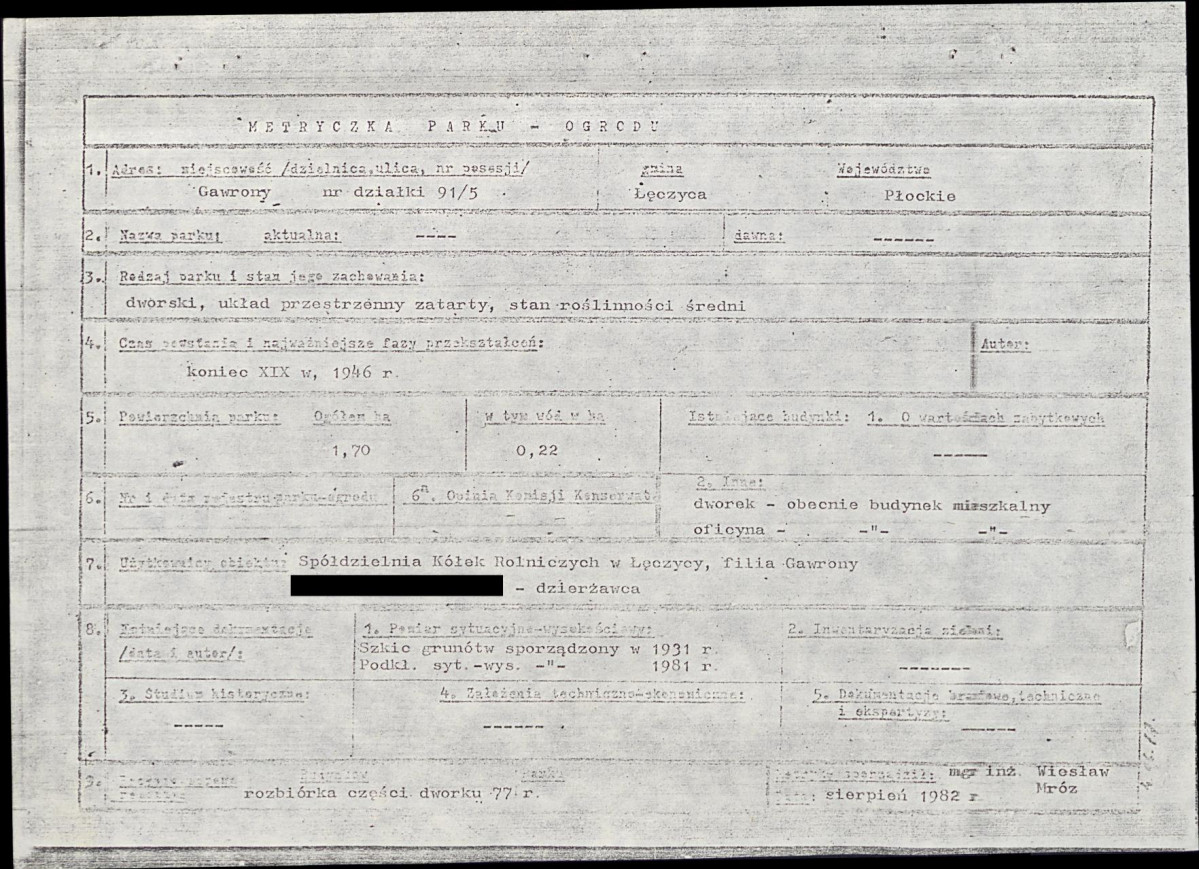 METRYCZKA PARKU - OGRODU
1. Adres: miejscowość /dzielnica, ulica, nr posesji/ gmina Województwo
Gawrony nr działki 91/5 Łęczyca Płockie
2. Nazwa parku: aktualna: ---- dawna: ------
3. Rodzaj parku i stan jego zachowania:
dworski, układ przestrzenny zatarty, stan roślinności średni
4. Czas powstania i najważniejsze fazy przekształceń: Autor:
koniec XIX w, 1946 r.
5. Powierzchnia parku: Ogółem ha w tym wód w ha Istniejące budynki: 1. O wartościach zabytkowych
1,70 0,22 -----
6. Nr i data rejestru parku-ogrodu 6a. Opinia Komisji Konserwat. 2. Inne:
dworek - obecnie budynek mieszkalny
oficyna - -"- -"-
7. Użytkownicy obiektu: Spółdzielnia Kółek Rolniczych w Łęczycy, filia Gawrony
- dzierżawca
8. Istniejące dokumentacje 1. Pomiar sytuacyjno-wysokościowy: 2. Inwentaryzacja zieleni:
/data i autor/: Szkic grunótw sporządzony w 1931 r.
Podkł. syt.-wys. -"- 1981 r. -------
3. Studium historyczne: 4. Założenia techniczno-ekonomiczne: 5. Dokumentacje branżowe, techniczne
i ekspertyzy:
----- ------ -----
9. mgr inż. Wiesław
Mróz
rozbiórka części dworku 77 r. sierpień 1982 r